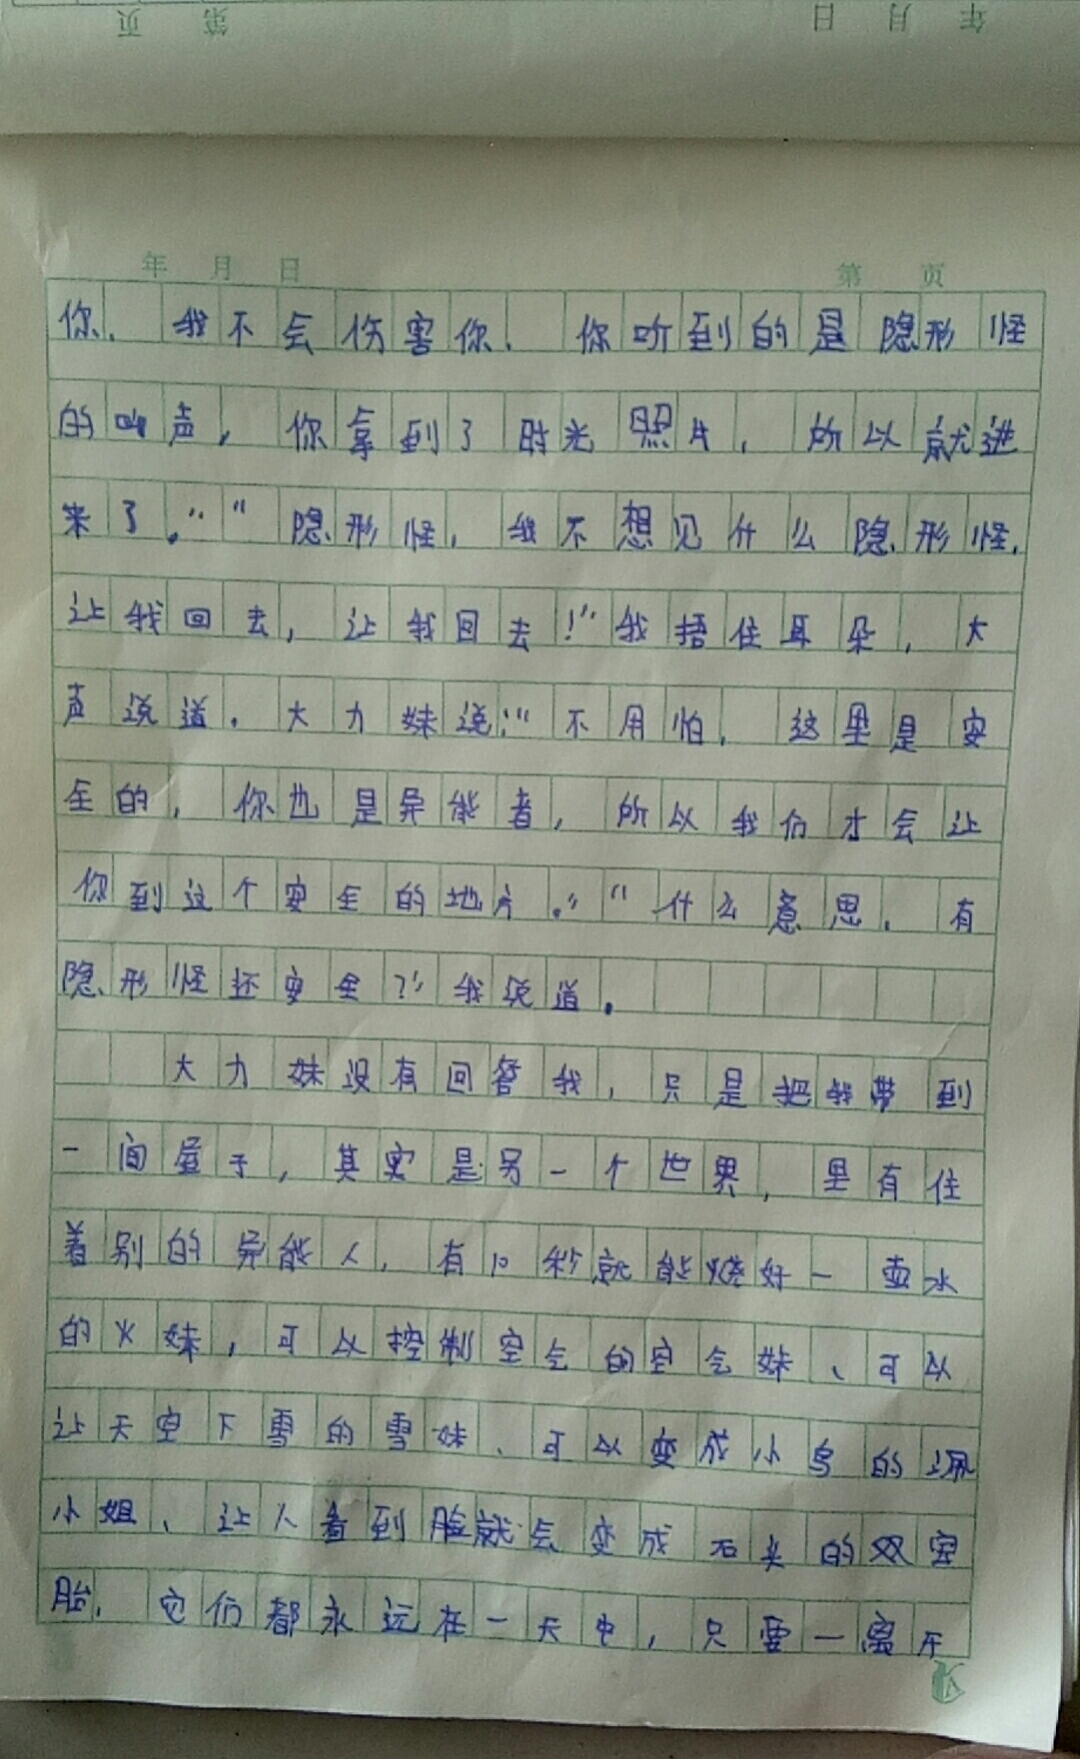 页 第 日 月 年
年 月 日 第 页
你、我不会伤害你、你听到的是隐形怪
的叫声，你拿到了时光照片，所以就进
来了。”“隐形怪，我不想见什么隐形怪，
让我回去，让我回去！”我捂住耳朵，大
声说道。大力妹说：“不用怕，这里是安
全的，你也是异能者，所以我们才会让
你到这个安全的地方。”“什么意思，有
隐形怪还安全？”我说道。
大力妹没有回答我，只是把我带到
一间屋子，其实是另一个世界，里有住
着别的异能人，有10秒就能烧好一壶水
的火妹，可以控制空气的空气妹、可以
让天空下雪的雪妹、可以变成小鸟的
小姐、让人看到脸就会变成石头的双宝
胎，它们都永远在一天中，只要一离开